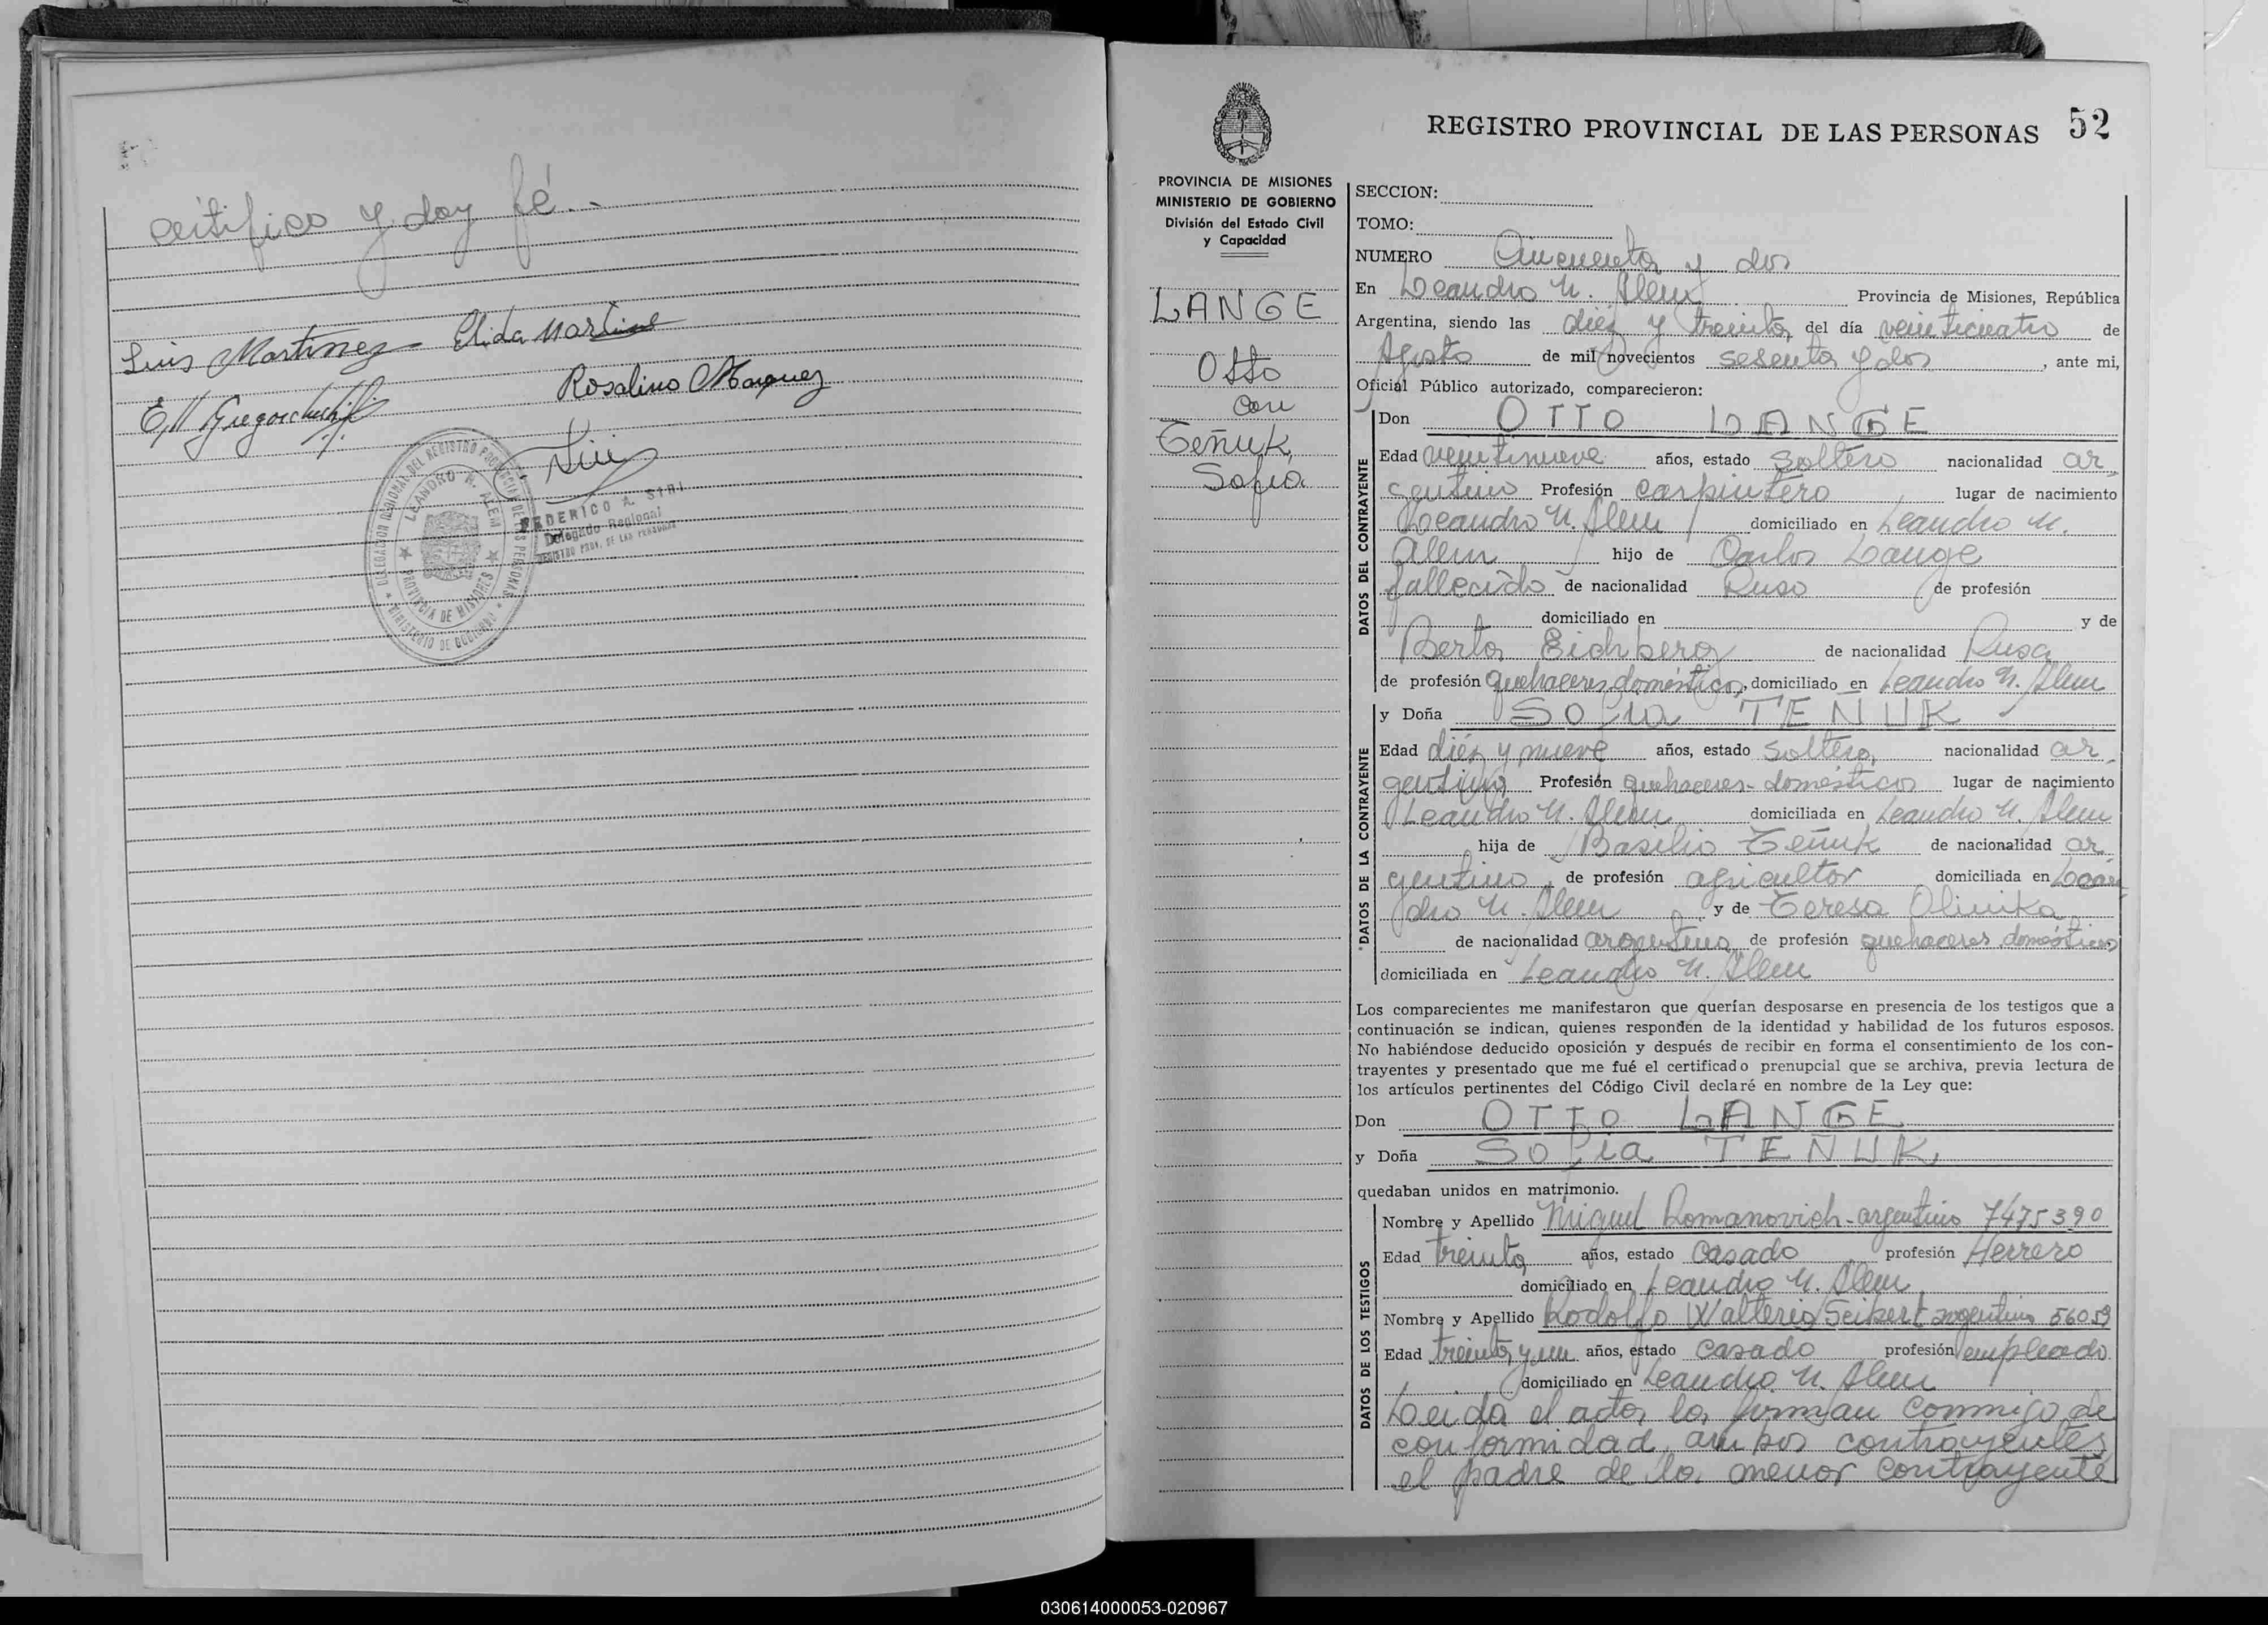 certifico y doy fé..
Luis Martinez Elida Martinez
Rosalino Marquez
DELEGACION REGIONAL DEL REGISTRO PROVINCIAL DE LAS PERSONAS
LEANDRO N. ALEM
PROVINCIA DE MISIONES
MINISTERIO DE GOBIERNO
FEDERICO A. SIRI
Delegado Regional
REGISTRO PROV. DE LAS PERSONAS
REGISTRO PROVINCIAL DE LAS PERSONAS 52
PROVINCIA DE MISIONES
MINISTERIO DE GOBIERNO
División del Estado Civil
y Capacidad
LANGE
Otto
con
Teñuk,
Sofia
SECCION:
TOMO:
NUMERO Cincuenta y dos
En Leandro N. Alem Provincia de Misiones, República
Argentina, siendo las diez y treinta del día veinticuatro de
Agosto de mil novecientos sesenta y dos, ante mi,
Oficial Público autorizado, comparecieron:
DATOS DEL CONTRAYENTE
Don OTTO LANGE
Edad veintinueve años, estado soltero nacionalidad ar-
gentino Profesión carpintero lugar de nacimiento
Leandro N. Alem domiciliado en Leandro N.
Alem hijo de Carlos Lange
fallecido de nacionalidad Ruso de profesión
domiciliado en y de
Berta Eichberg de nacionalidad Rusa
de profesión quehaceres domésticos, domiciliado en Leandro N. Alem
DATOS DE LA CONTRAYENTE
y Doña Sofia TEÑUK
Edad diez y nueve años, estado soltera nacionalidad ar-
gentina Profesión quehaceres-domésticos lugar de nacimiento
Leandro N. Alem domiciliada en Leandro N. Alem
hija de Basilio Teñuk de nacionalidad ar-
gentino, de profesión agricultor domiciliada en Lean-
dro N. Alem y de Teresa Olinika
de nacionalidad argentina de profesión quehaceres domésticos
domiciliada en Leandro N. Alem
Los comparecientes me manifestaron que querían desposarse en presencia de los testigos que a
continuación se indican, quienes responden de la identidad y habilidad de los futuros esposos.
No habiéndose deducido oposición y después de recibir en forma el consentimiento de los con-
trayentes y presentado que me fué el certificado prenupcial que se archiva, previa lectura de
los artículos pertinentes del Código Civil declaré en nombre de la Ley que:
Don OTTO LANGE
y Doña Sofia TEÑUK
quedaban unidos en matrimonio.
DATOS DE LOS TESTIGOS
Nombre y Apellido Miguel Romanovich-argentino 7475390
Edad treinta años, estado casado profesión Herrero
domiciliado en Leandro N. Alem
Nombre y Apellido Rodolfo Walterio Seikert argentino 56059
Edad treinta y un años, estado casado profesión empleado
domiciliado en Leandro N. Alem
Leida el acta la firman conmigo de
conformidad, ambos contrayentes
el padre de la menor contrayente
030614000053-020967